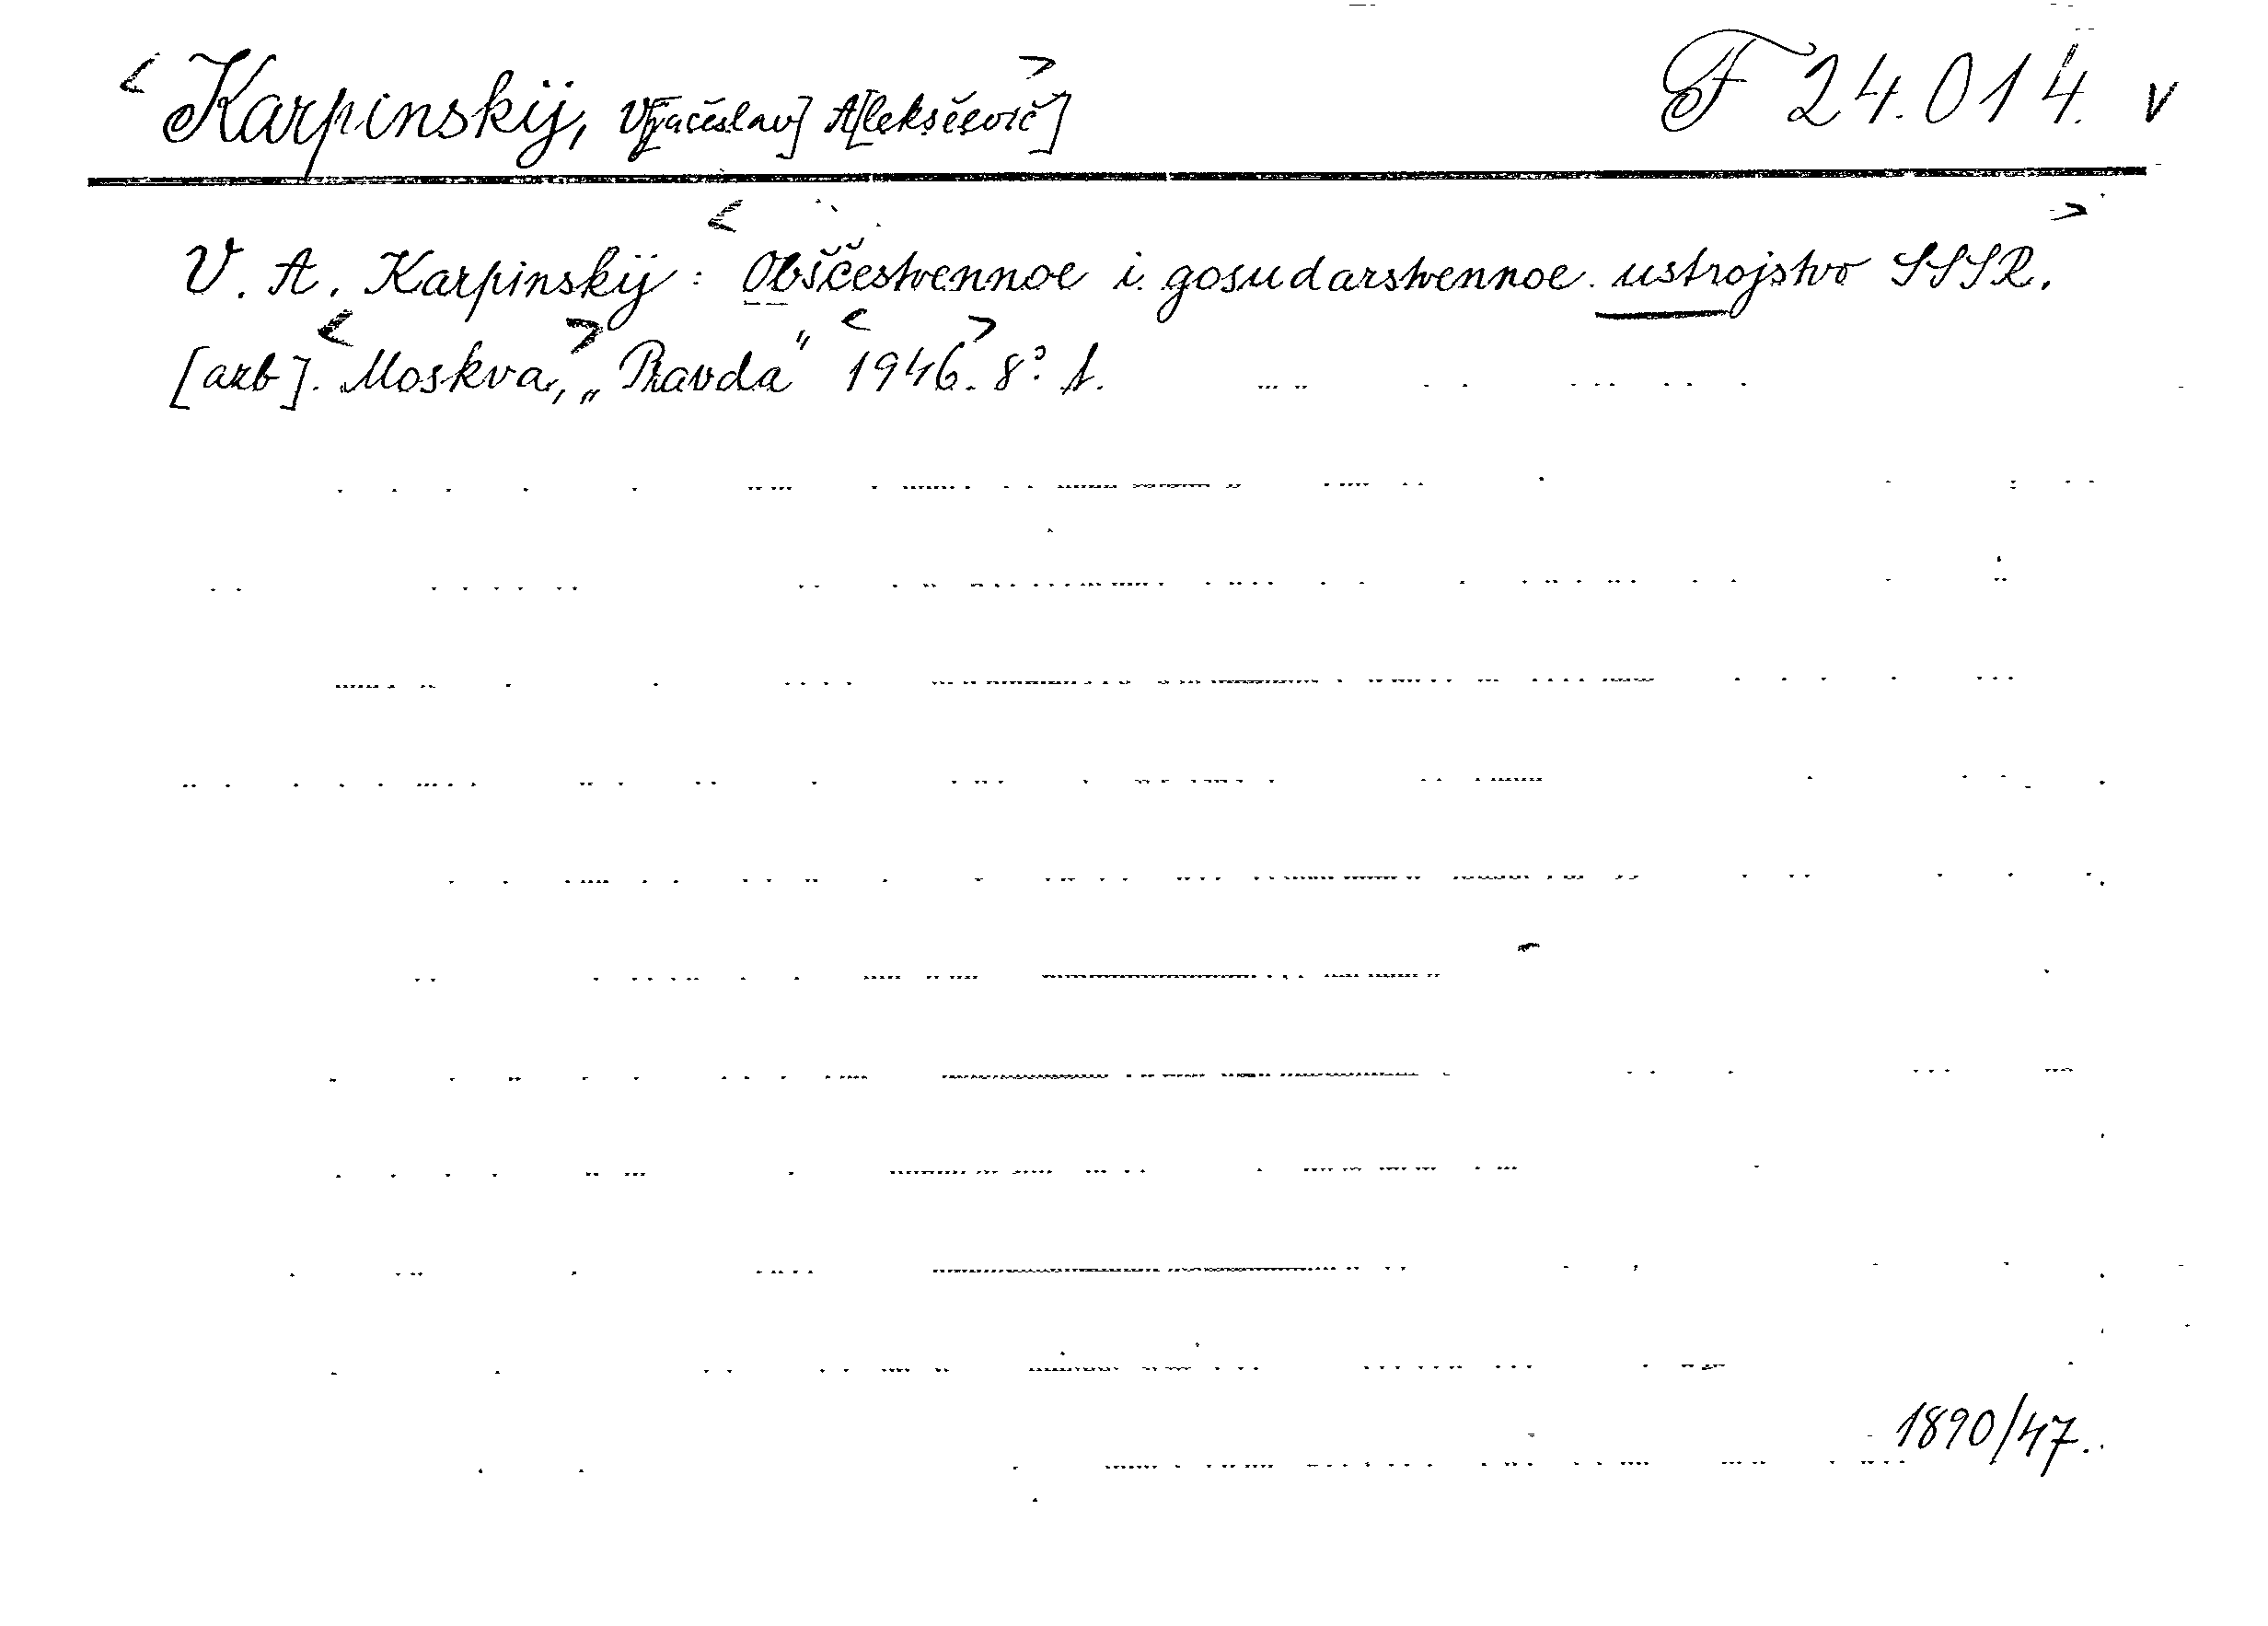 <Karpinskij, V[jačeslav] A[leksěevič]> F 24.014. v
V. A. Karpinskij: <Obščestvennoe i gosudarstvennoe ustrojstvo SSSR.>
[azb]. <Moskva,> „Pravda” <1946.> 8°. 1.
1890/47.